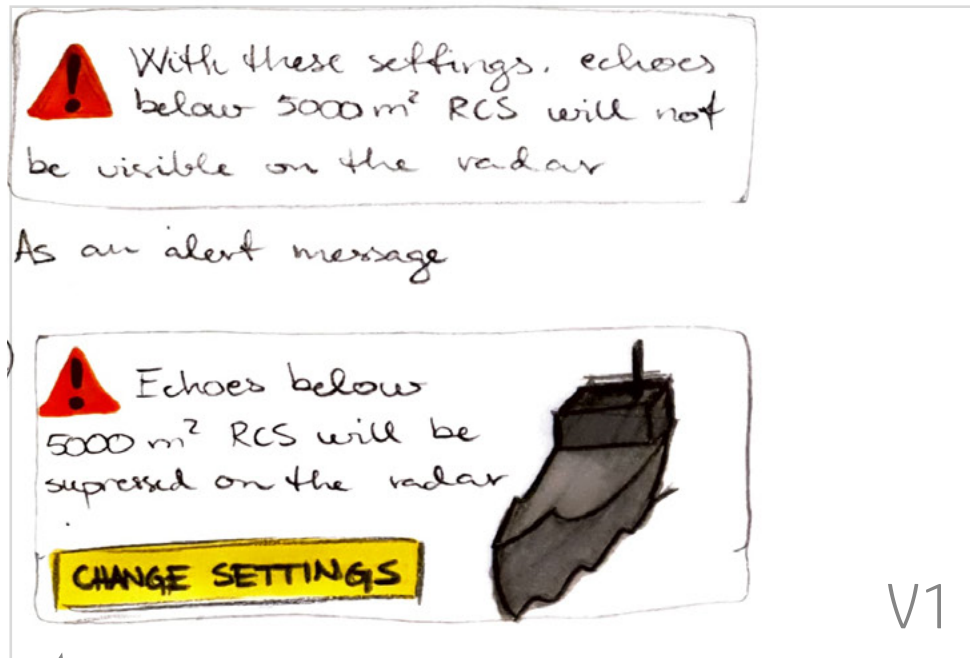 With these settings, echoes
below 5000 m² RCS will not
be visible on the radar
As an alert message
Echoes below
5000 m² RCS will be
supressed on the radar
CHANGE SETTINGS
V1